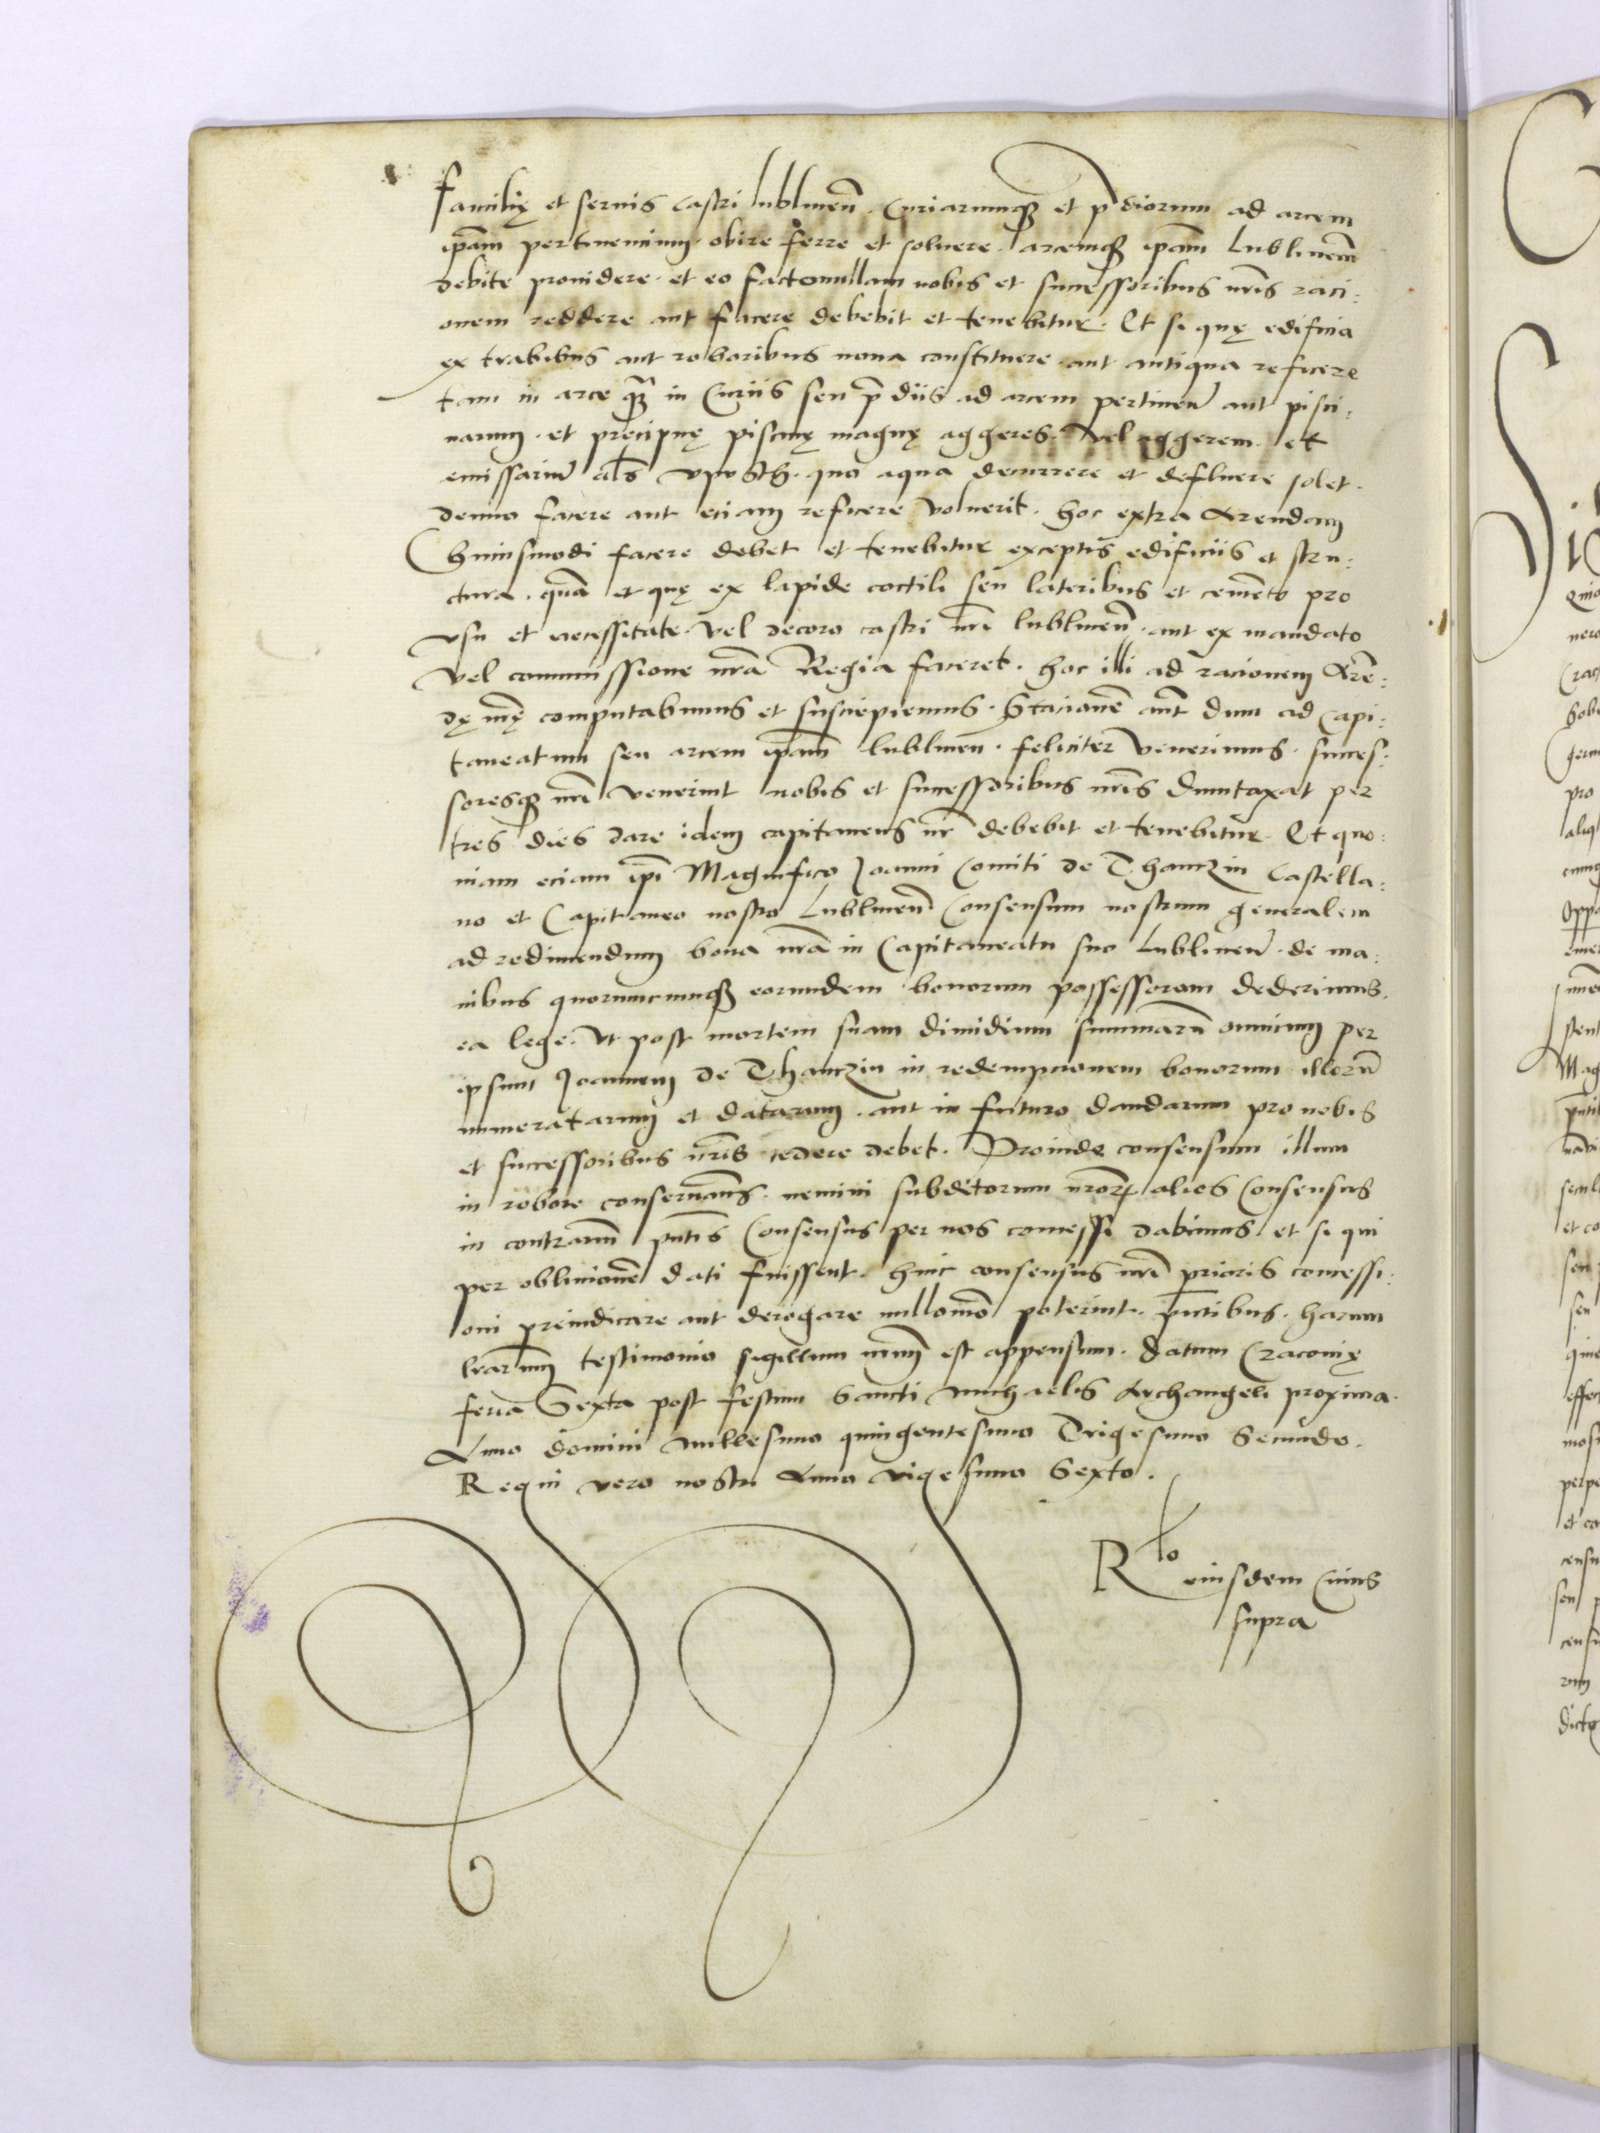 familię et seruis castri lublinen̄. Curiarumq3 et p̄diorum ad arcem
ip̄am pertinencium. obire ferre et soluere. arcemq3 ip̄am Lublinen̄
debite prouidere. et eo facto nullam nobis et successoribus nr̄is raci:
onem reddere aut facere debebit et tenebitur. Et si quę edificia
ex trabibus aut roboribus noua constituere aut antiqua reficere
tam in arce q̄3 in Curiis seu p̄diis ad arcem pertinen̄ aut pisci:
narum. et precipuę piscinę magnę aggeres. vel aggerem. et
emissariū al̄s vpvsth. quo aqua decurrere et defluere solet.
denuo facere aut eciam reficere voluerit. hoc extra Arendam
Huiusmodi facere debet et tenebitur exceptis edificiis et stru:
ctura. quā et quę ex lapide coctili seu lateribus et cemēto pro
vsu et necessitate. vel decoro castri nr̄i lublinen̄. aut ex mandato
vel commissione nr̄a Regia faceret. hoc illi ad racionem Arē:
dę nr̄ę computabimus et suscipiemus. Stacionē aūt dum ad Capi:
taneatum seu arcem ip̄am lublinen̄. feliciter venerimus. succes:
soresq3 nr̄i venerint nobis et successoribus nr̄is dumtaxat per
tres dies dare idem capitaneus nr̄ debebit et tenebitur. Et quo:
niam eciam ip̄i Magnifico Joanni Comiti de Thanczin Castella:
no et Capitaneo nostro Lublinen̄ Consensum nostrum generalem
ad redimendum bona nr̄a in Capitaneatu suo Lublinen̄. de ma:
nibus quorumcumq3 eorumdem bonorum possessorum dederimus.
ea lege. vt post mortem suam dimidium summarū omnium per
ipsum Joannem de Thanczin in redempcionem bonorum illorū
numeratarum et datarum. aut in futuro dandarum pro nobis
et successoribus nr̄is cedere debet. Proinde consensum illum
in robore conseruantes. nemini subditorum nr̄or̄ alios Consensus
in contrariū pn̄tis Consensus per nos concessi dabimus et si qui
per obliuionē dati fuissent. huic consensus nr̄i prioris concessi:
oni preiudicare aut derogare nullomō poterint. pn̄tibus. harum
lr̄ar̄ quibus testimonio sigillum nr̄um est appensum. Datum Cracouię
feria Sexta post festum Sancti Michaelis Archangeli proxima.
Anno domini Millesimo quingentesimo Trigesimo Secundo.
Regni vero nostri Anno vigesimo Sexto.
R^to eiusdem Cuius
supra